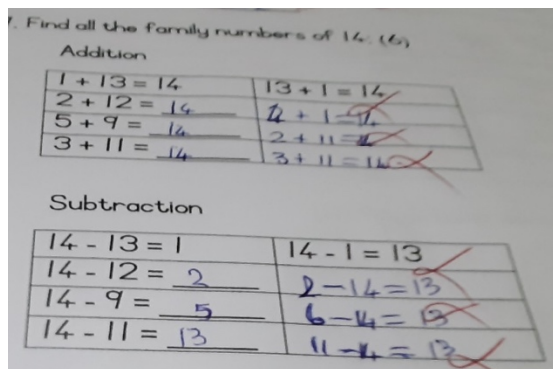 . Find all the family numbers of 14. (6)
Addition
1 + 13 = 14 13 + 1 = 14
2 + 12 = 14 12 + 1 = 14
5 + 9 = 14 2 + 11 = 14
3 + 11 = 14 3 + 11 = 14
Subtraction
14 - 13 = 1 14 - 1 = 13
14 - 12 = 2 2 - 14 = 13
14 - 9 = 5 6 - 14 = 13
14 - 11 = 13 11 - 4 = 13